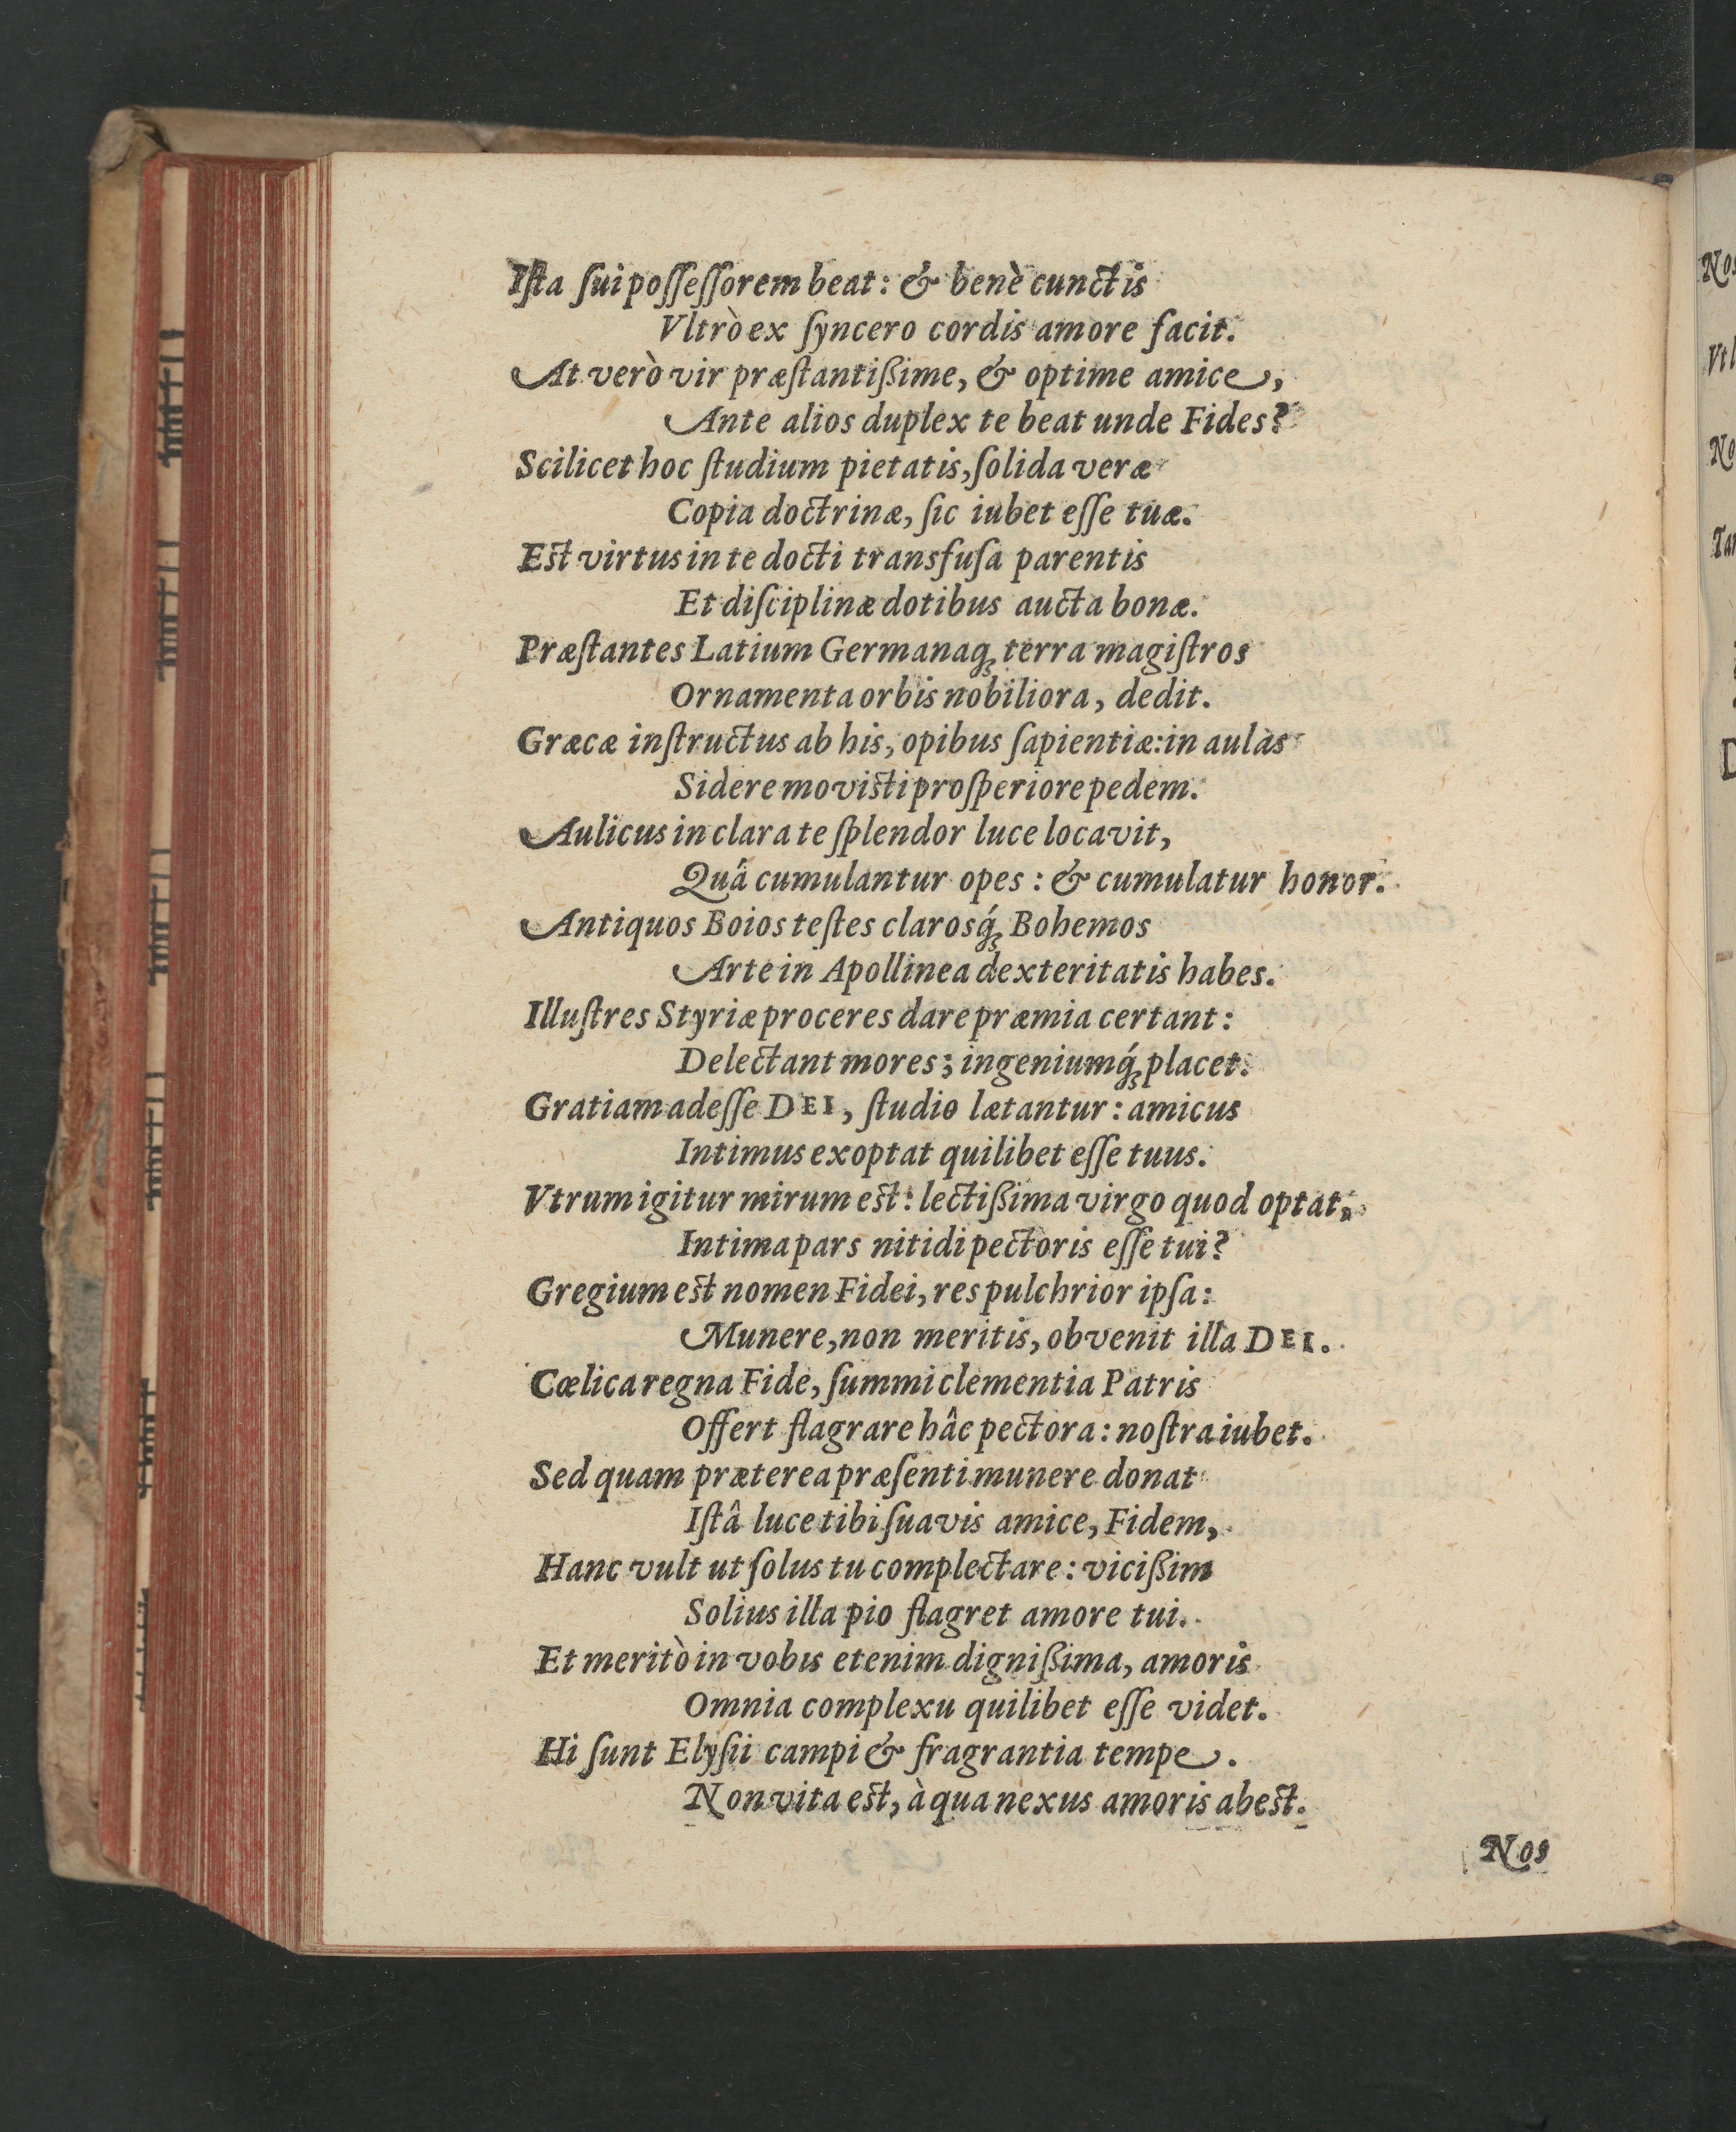 Iſta ſui poſſeſſorem beat: & benè cunctis
Vltrò ex ſyncero cordis amore facit.
At verò vir præſtantißime, & optime amice,
Ante alios duplex te beat unde Fides?
Scilicet hoc ſtudium pietatis, ſolida veræ
Copia doctrinæ, ſic iubet eſſe tuæ.
Est virtus in te docti transfuſa parentis
Et diſciplinæ dotibus aucta bonæ.
Præſtantes Latium Germanaq́; terra magiſtros
Ornamenta orbis nobiliora, dedit.
Græcæ inſtructus ab his, opibus ſapientiæ: in aulas
Sidere movisti proſperiore pedem.
Aulicus in clara te ſplendor luce locavit,
Quâ cumulantur opes: & cumulatur honor.
Antiquos Boios teſtes clarosq́; Bohemos
Arte in Apollinea dexteritatis habes.
Illuſtres Styriæ proceres dare præmia certant:
Delectant mores; ingeniumq́; placet.
Gratiam adeſſe DEI, ſtudio lætantur: amicus
Intimus exoptat quilibet eſſe tuus.
Vtrum igitur mirum est: lectißima virgo quod optat,
Intima pars nitidi pectoris eſſe tui?
Gregium est nomen Fidei, res pulchrior ipſa:
Munere, non meritis, obvenit illa DEI.
Cœlica regna Fide, ſummi clementia Patris
Offert flagrare hâc pectora: noſtra iubet.
Sed quam præterea præſenti munere donat
Iſtâ luce tibi ſuavis amice, Fidem,
Hanc vult ut ſolus tu complectare: vicißim
Solius illa pio flagret amore tui.
Et meritò in vobis etenim dignißima, amoris
Omnia complexu quilibet eſſe videt.
Hi ſunt Elyſii campi & fragrantia tempe.
Non vita est, à qua nexus amoris abest.
Nos